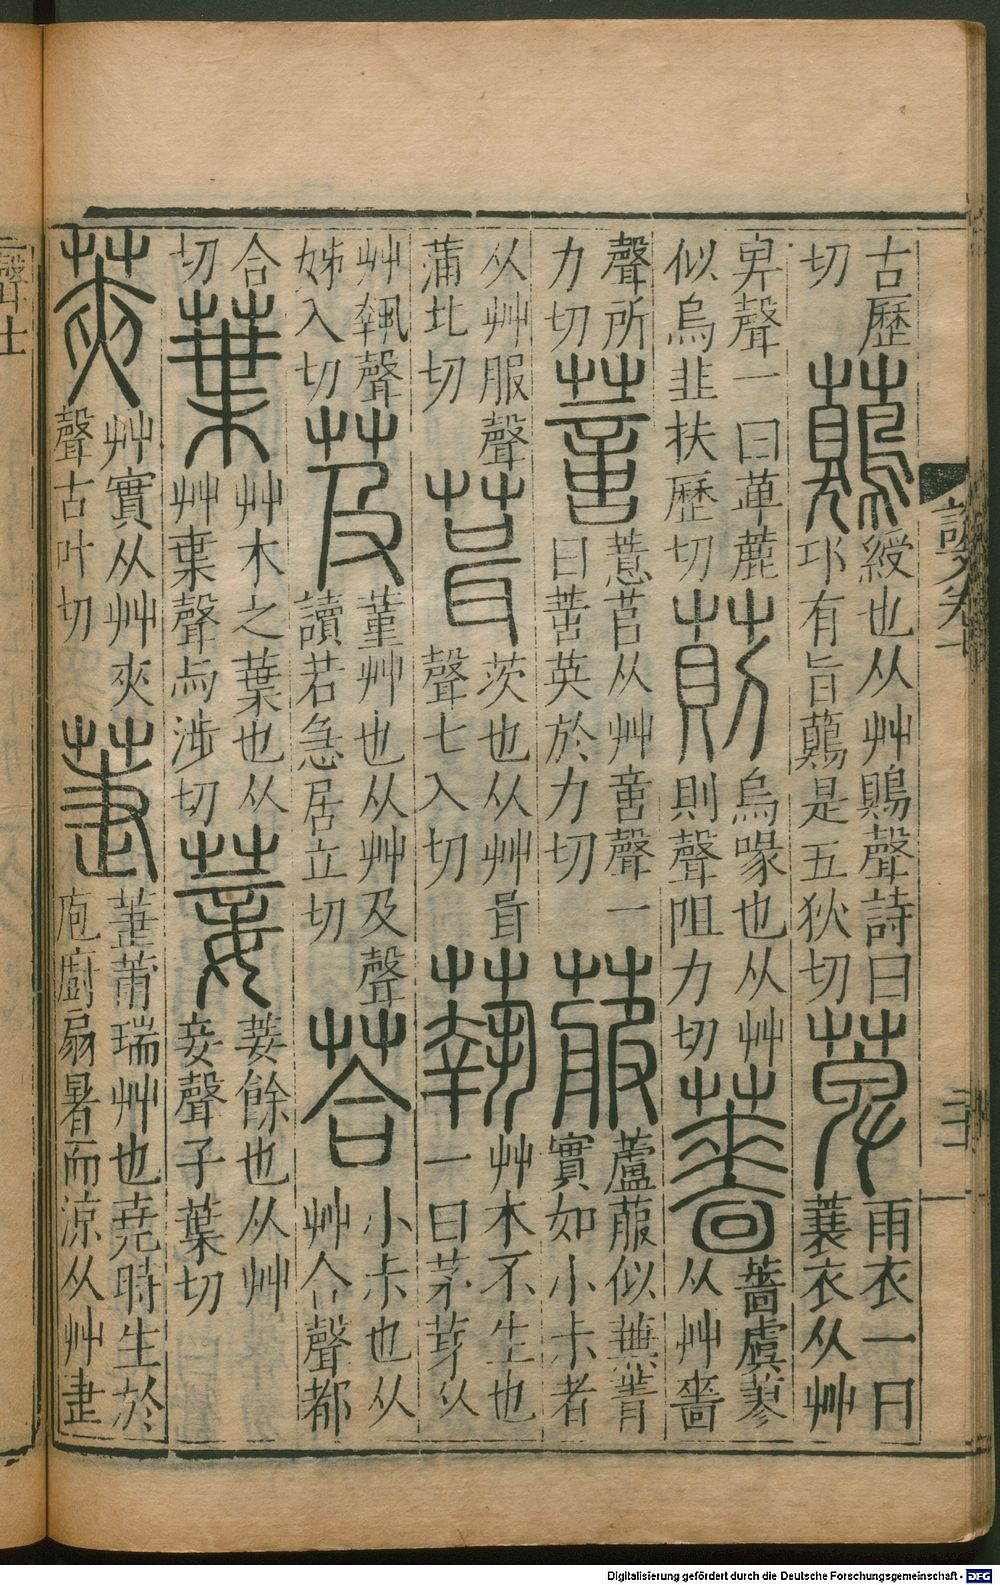 說文卷十
二十
古歷
切
䕌
綬也从艸鶪聲詩曰
邛有旨䕌是五狄切
萆
雨衣一曰
蓑衣从艸
卑聲一曰萆蔍
似烏韭扶歷切
萴
烏喙也从艸
則聲阻力切
薔
薔虞蓼
从艸嗇
聲所
力切
薏苢从艸啻聲一
曰英於力切
菔
蘆菔似蕪菁
實如小尗者
从艸服聲
蒲北切
葺
茨也从艸咠
聲七入切
蓻
艸木不生也
一曰茅芽从
艸執聲
姊入切
芨
堇艸也从艸及聲
讀若急居立切
荅
小尗也从
艸合聲都
合
切
葉
艸木之葉也从
艸枼聲与涉切
菨
菨餘也从艸
妾聲子葉切
莢
艸實从艸夾
聲古叶切
萐
萐莆瑞艸也堯時生於
庖廚扇暑而涼从艸疌
Digitalisierung gefördert durch die Deutsche Forschungsgemeinschaft - DFG